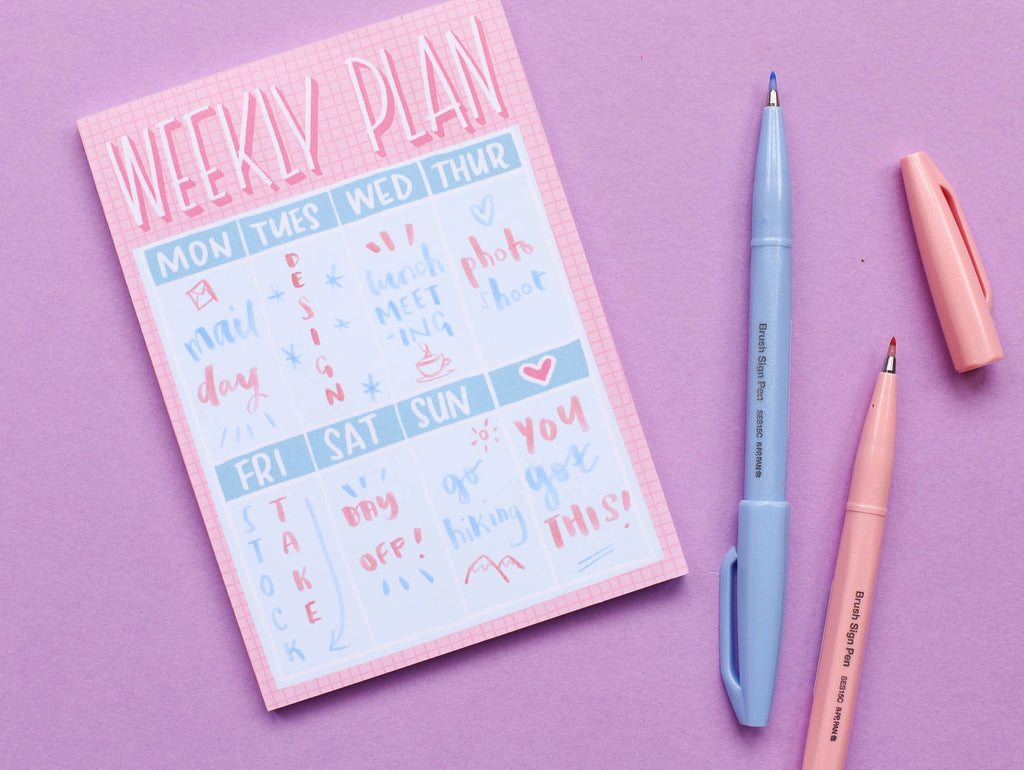 WEEKLY PLAN
MON
TUES
WED
THUR
mail
day
DESIGN
lunch
MEET
-ING
photo
shoot
FRI
SAT
SUN
STOCK
TAKE
DAY
OFF!
go
hiking
YOU
got
THIS!
Brush Sign Pen SES15C
Brush Sign Pen SES15C